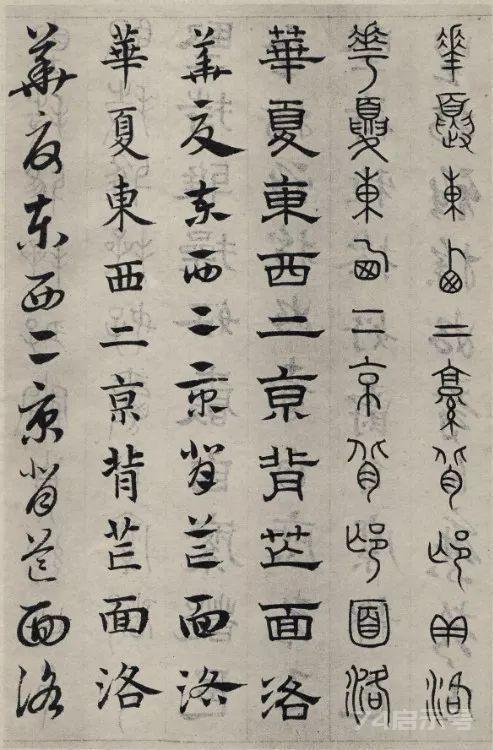 華夏東西二京背邙面洛
華夏東西二京背邙面洛
華夏東西二亰背芒面洛
華夏東西二京背芒面洛
華夏東西二亰背芒面洛
華夏東西二京背芒面洛
启示号